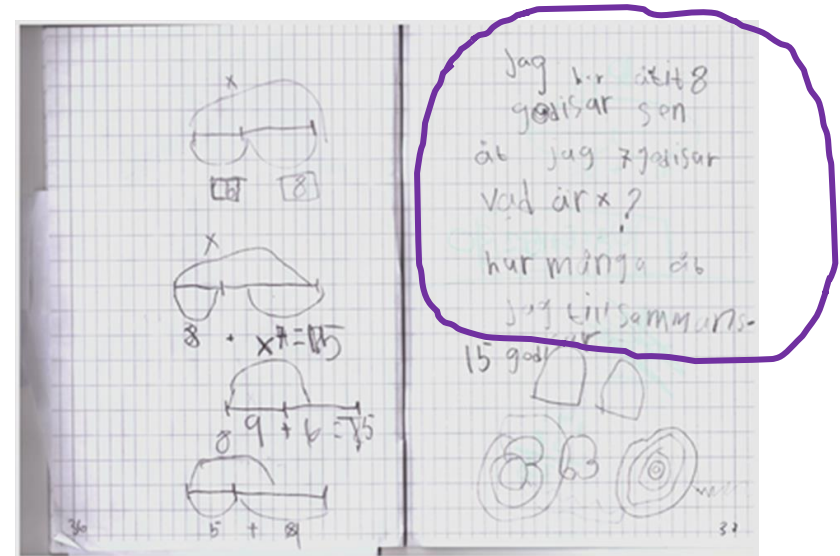 x
6 8
x
8 + x 7 = 15
9 + 6 = 15
8
5 +
36
Jag har ätit 8
godisar sen
åt jag 7 godisar
vad är x?
hur många åt
jag till sammans.
15 godisar
63
37